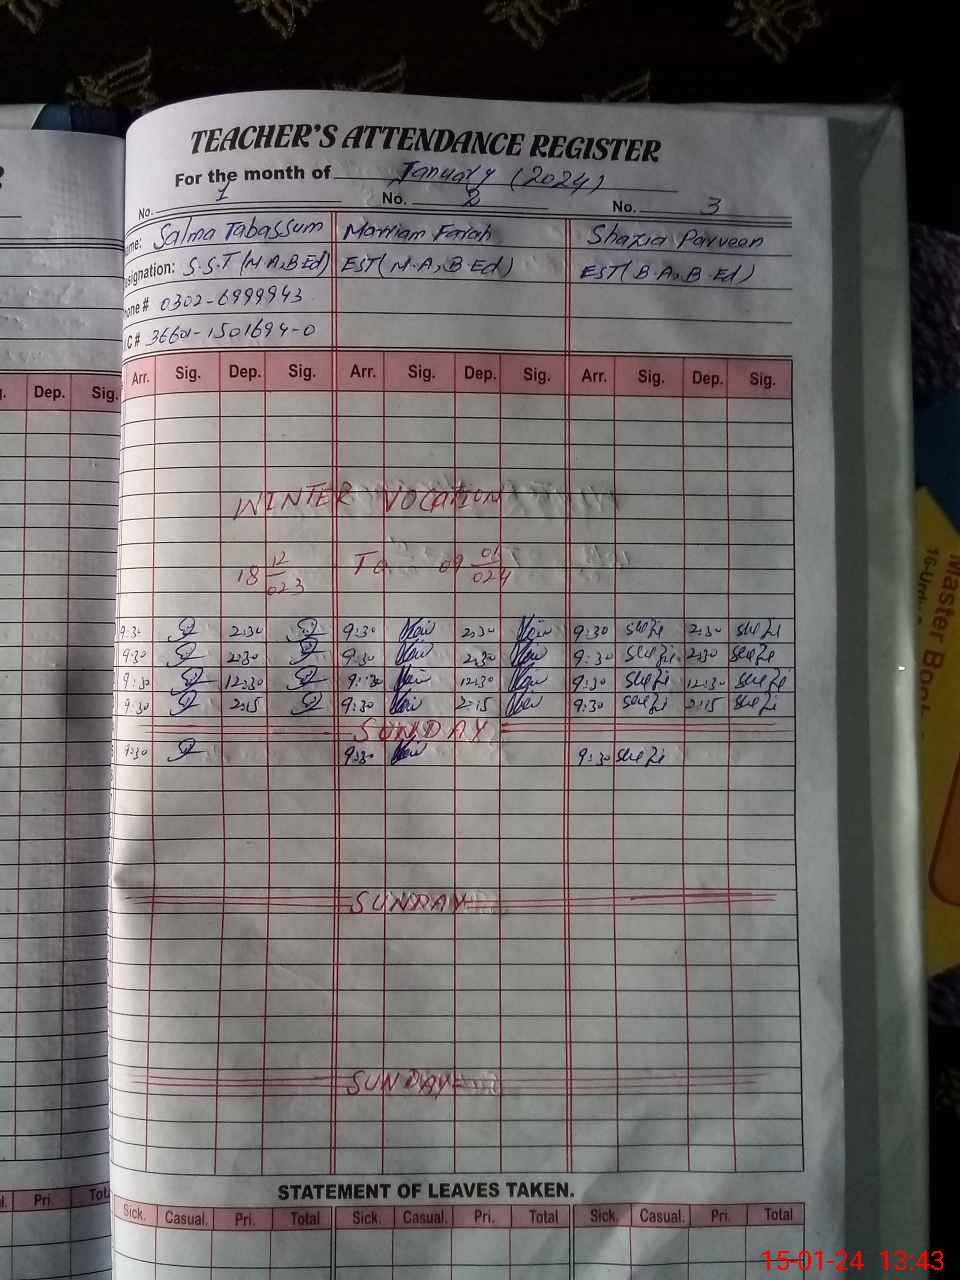 TEACHER'S ATTENDANCE REGISTER
For the month of January (2024)
No. 1 No. 2 No. 3
ame: Salma Tabassum Marriam Farah Shazia Parveen
esignation: S.S.T (M.A,B.Ed) EST(M.A,B.Ed) EST(B.A,B.Ed)
one # 0302-6999943
.C # 36601-1501694-0
Dep. Sig. Arr. Sig. Dep. Sig. Arr. Sig. Dep. Sig. Arr. Sig. Dep. Sig.
WINTER VOCATION
18 12/023 To 09 01/024
9:30 2:30 9:30 2:30 9:30 2:30
9:30 2:30 9:30 2:30 9:30 2:30
9:30 12:30 9:30 12:30 9:30 12:30
9:30 2:15 9:30 2:15 9:30 2:15
SUNDAY
9:30 9:30 9:30
SUNDAY
SUNDAY
STATEMENT OF LEAVES TAKEN.
Pri. Sick. Casual. Pri. Total Sick. Casual. Pri. Total Sick. Casual. Pri. Total
15-01-24 13:43